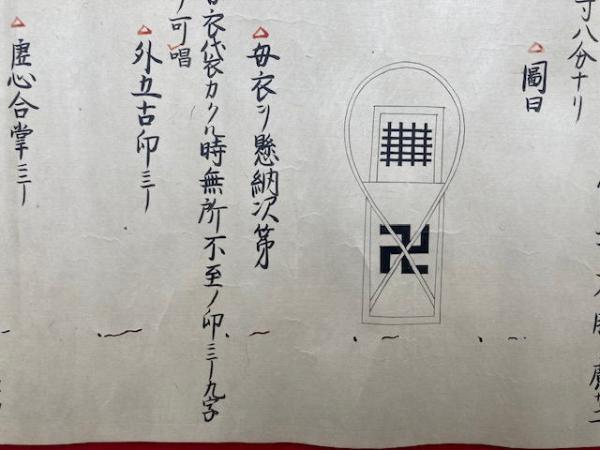 寸八分ナリ
圖曰
母衣ヲ懸納次第
カクル時無所不至ノ印三ー九字
可唱
外五古印三ー
虚心合掌三ー